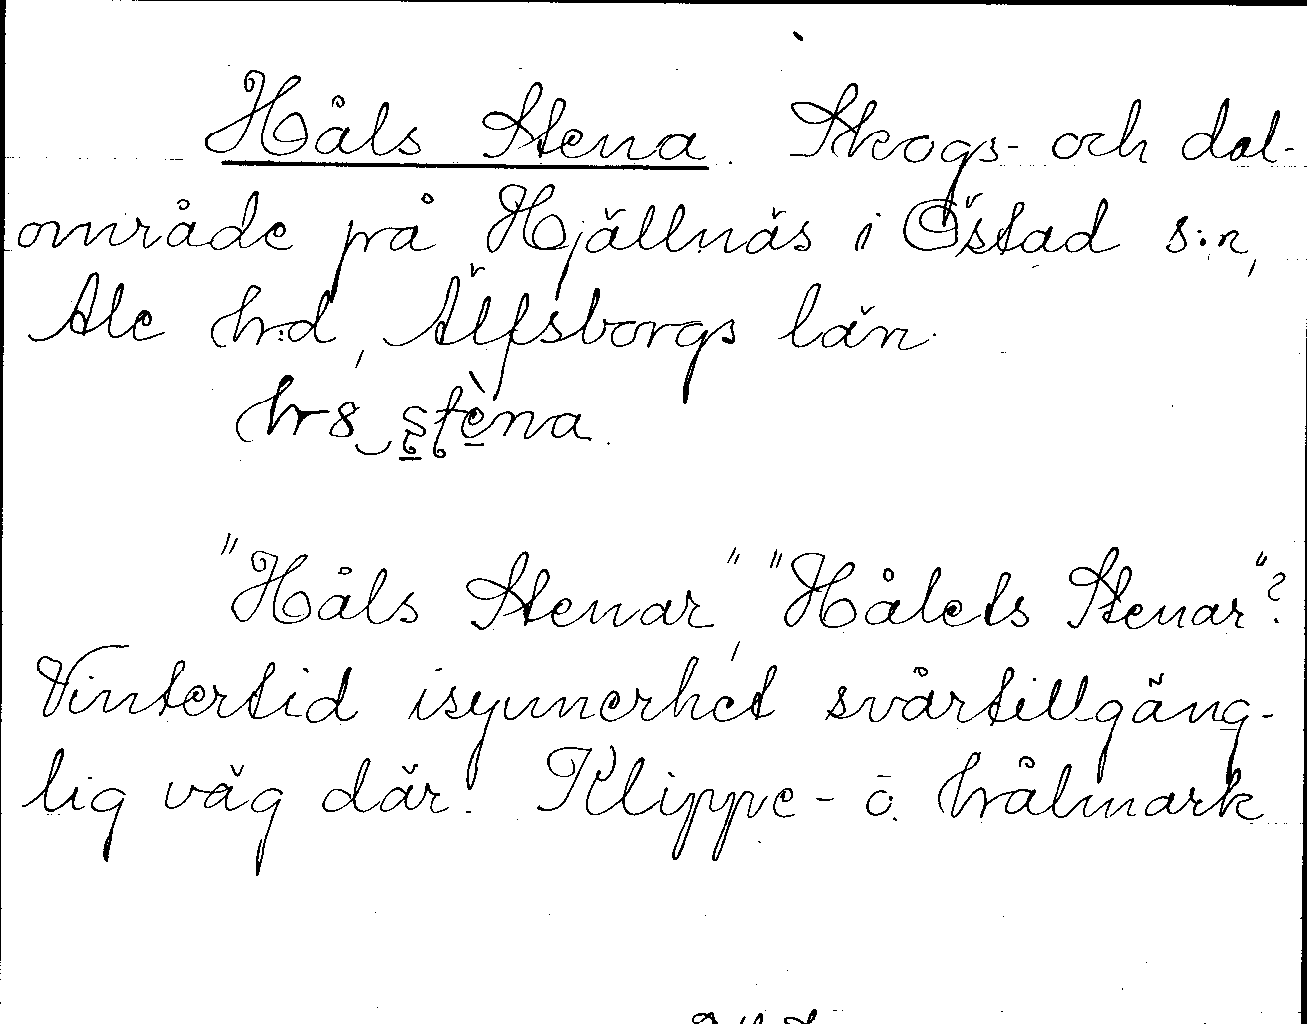 Håls Stena. Skogs- och dal-
område på Hjällnäs i Östad s:n,
Ale h:d, Älfsborgs län.
"Håls Stenar", "Hålets Stenar"?
Vintertid isynnerhet svårtillgäng-
lig väg där. Klippe- o. hålmark